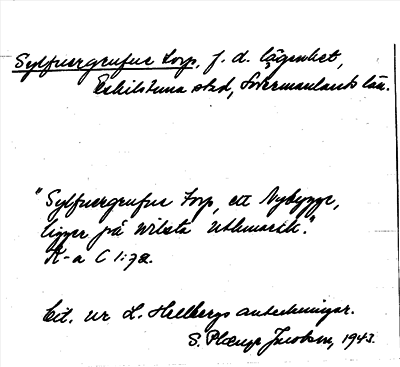 Sylfuergrufue Torp, f. d. lägenhet,
Eskilstuna stad, Södermanlands län.
"Sylfuergrufue Torp, ett Nybygge,
ligger på Wilsta Uthmark."
K-a C I:72.
Cit. ur L. Hellbergs anteckningar.
S. Jacobson, 1943.